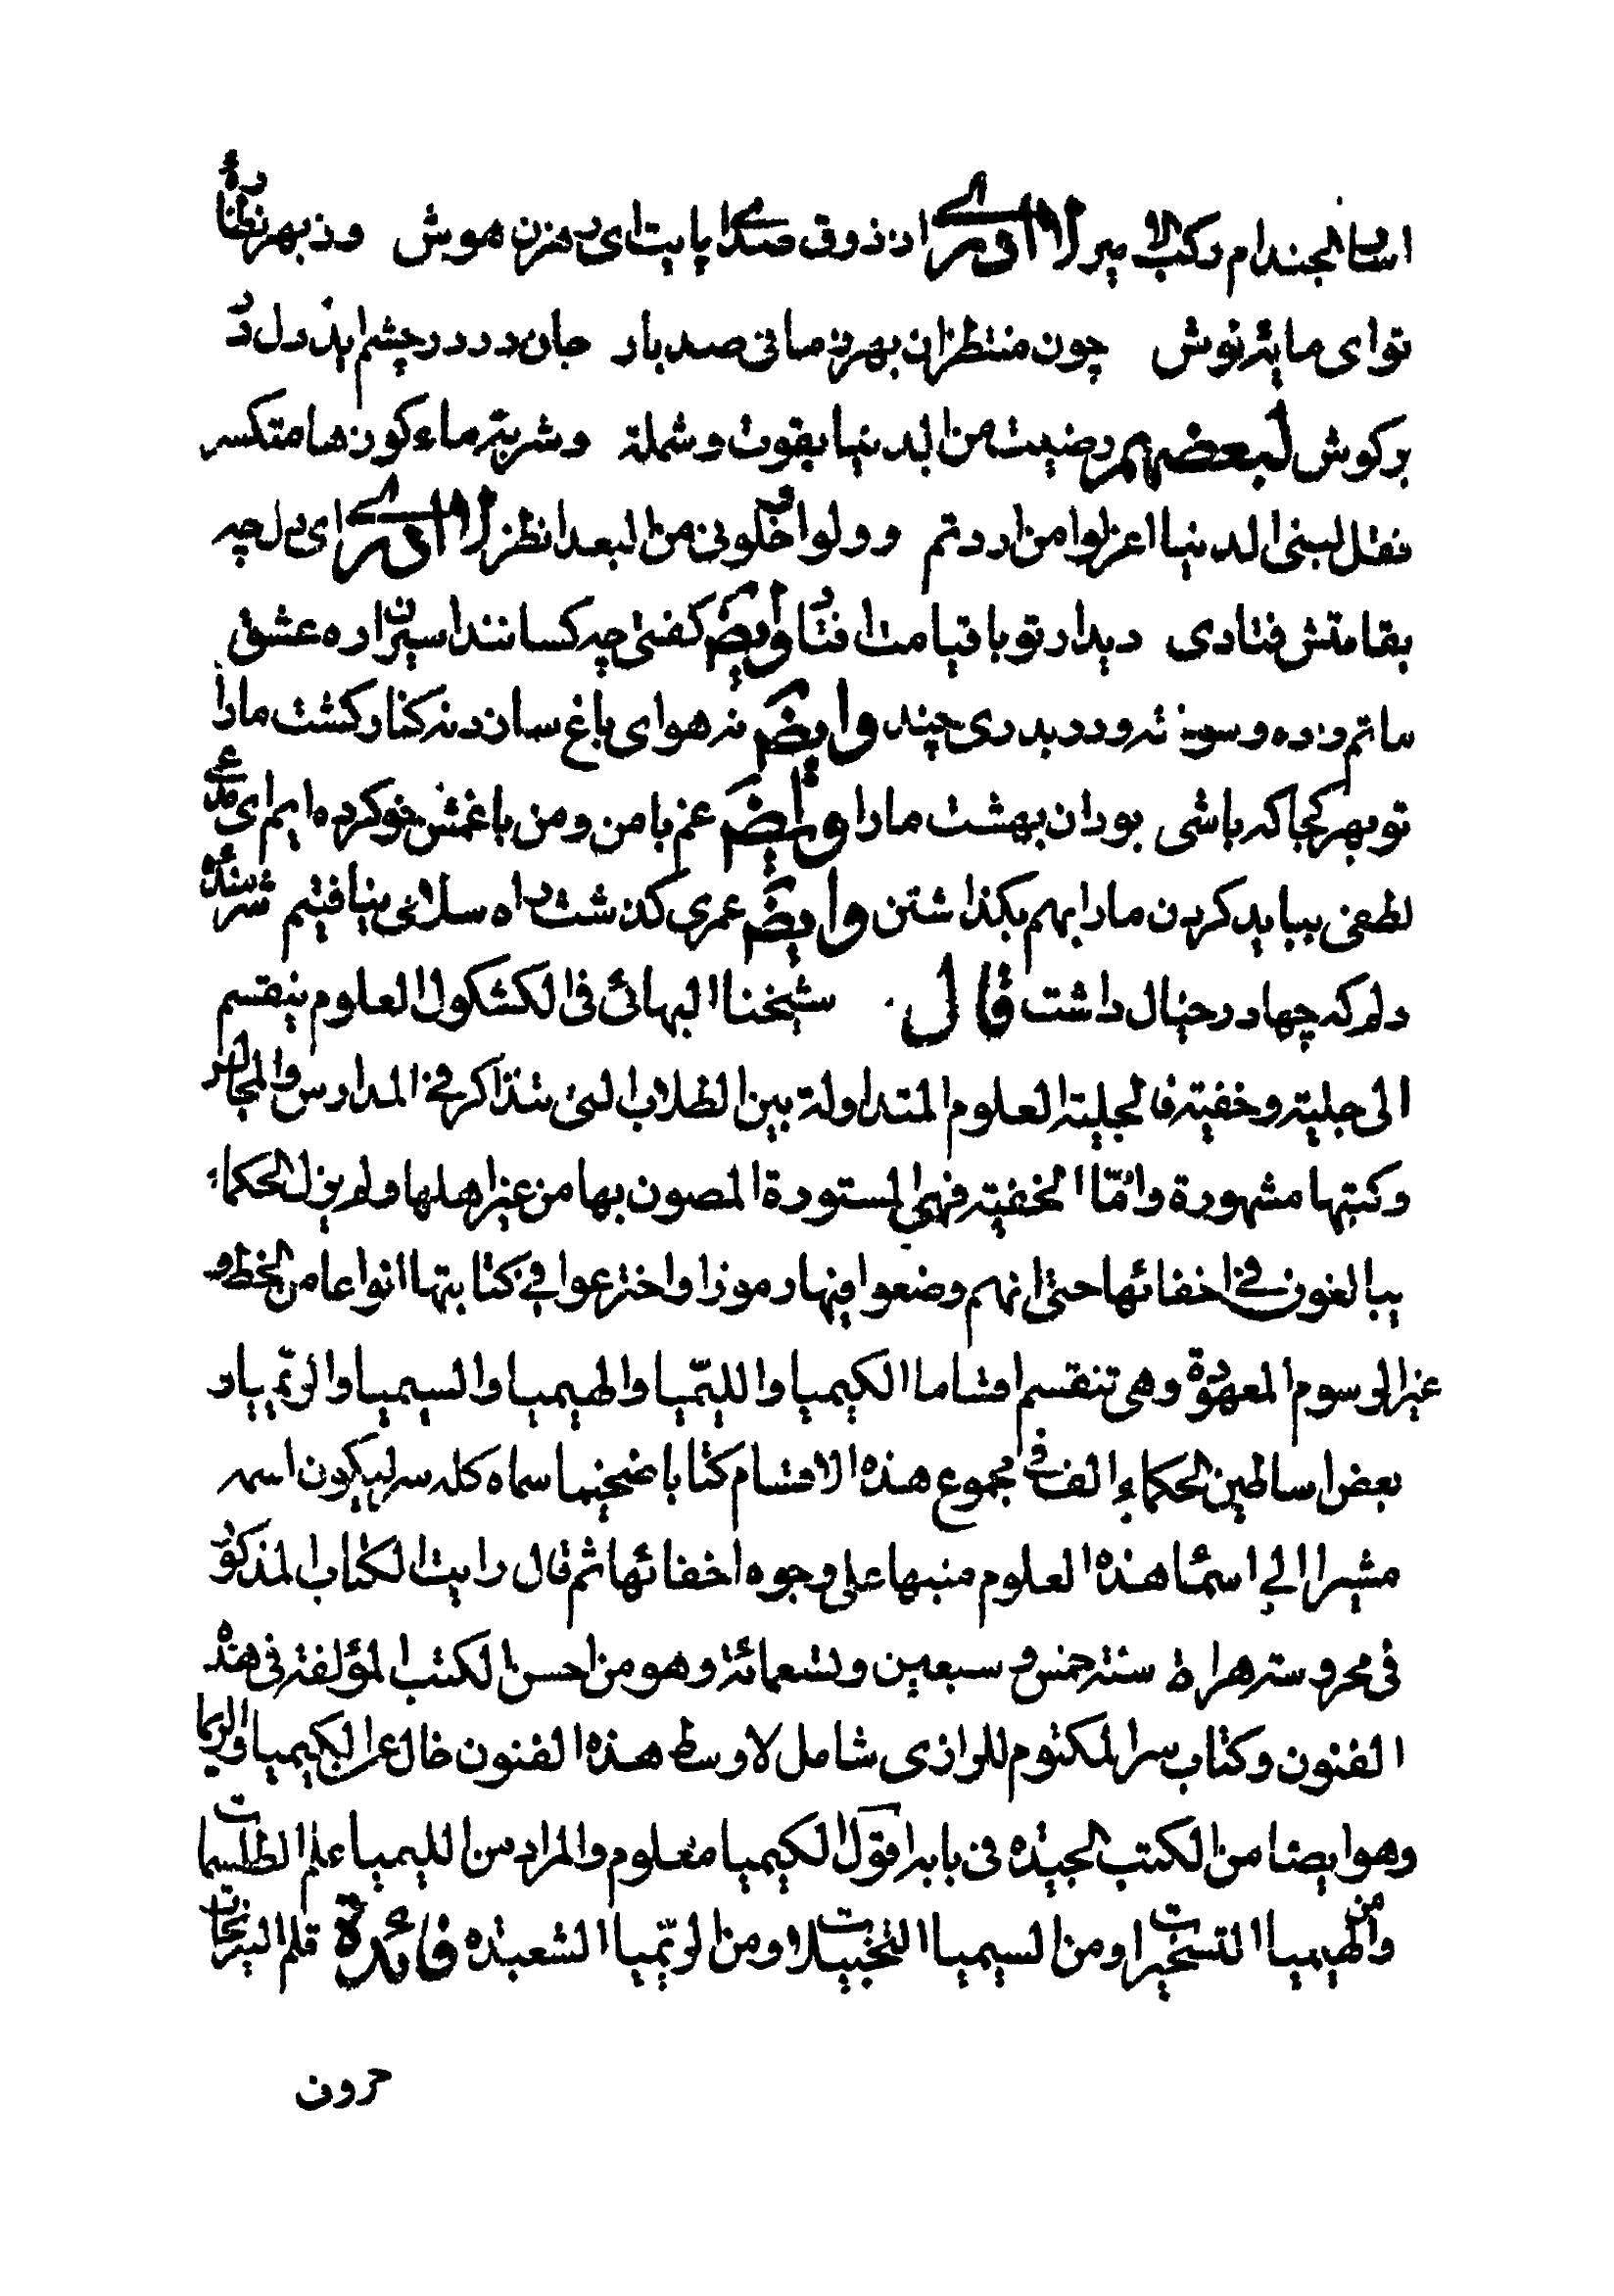 اسباب الجذام رکب الا میر لا ادری از ذوق صدای پایت ای رهزن هوش وز بهر نظاره
تو ای مایه نوش چون منتظران بهر زمانی صد بار جان در در چشم آید و دل در
بر کوش لبعضهم رضیت من الدنیا بقوت وشملة وشربة ماء کوزها متکسر
فقل لبنی الدنیا اعزلوا من اردتم وولوا وخلونی من البعد انظر لا ادری ای دل چه
بقامتش فتادی دیدار تو با قیامت افتاد وایضا کفتی چه کسانند اسیران ره عشق
ماتم زده و سوخته و در بدری چند وایضا نه هوای باغ سازد نه کنار کشت مارا
تو بهر کجا که باشی بود آن بهشت مارا وایضا غم با من و من با غمش خو کرده ایم ای مدعی
لطفی بباید کردن مارا بهم بکذاشتن وایضا عمری کذشت راه سلامی نیافتیم شرمنده
دلم که چها در خیال داشت قال شیخنا البهائی فی الکشکول العلوم ینقسم
الی جلیة وخفیة فالجلیة العلوم المتداولة بین الطلاب التی تتذاکر فی المدارس والمجالس
وکتبها مشهورة وامّا الخفیة فهی المستورة المصون بها من غیر اهلها ولم یزل الحکماء
یبالغون فی اخفائها حتی انهم وضعوا فیها رموزا واخترعوا فی کتابتها انواعا من الخطو
غیر الرسوم المعهودة وهی تنقسم اقساما الکیمیا واللیمیا والهیمیا والسیمیا والریمیا و
بعض اساطین الحکماء الف فی مجموع هذه الاقسام کتابا ضخیما سماه کله سر لیکون اسمه
مشیرا الی اسماء هذه العلوم منبها علی وجوه اخفائها ثم قال رایت الکتاب المذکور
فی محروسة هراة سنة خمس و سبعین وتسعمائة وهو من احسن الکتب المؤلفة فی هذه
الفنون وکتاب سر المکتوم للرازی شامل لاوسط هذه الفنون خال عن الکیمیا والریمیا
وهو ایضا من الکتب الجیدة فی بابه اقول الکیمیا معلوم والمراد من اللیمیا علم الطلسمات
و من الهیمیا التسخیرات ومن السیمیا التخییلات ومن الریمیا الشعبذه فائدة قلم النیرنجات
حرون